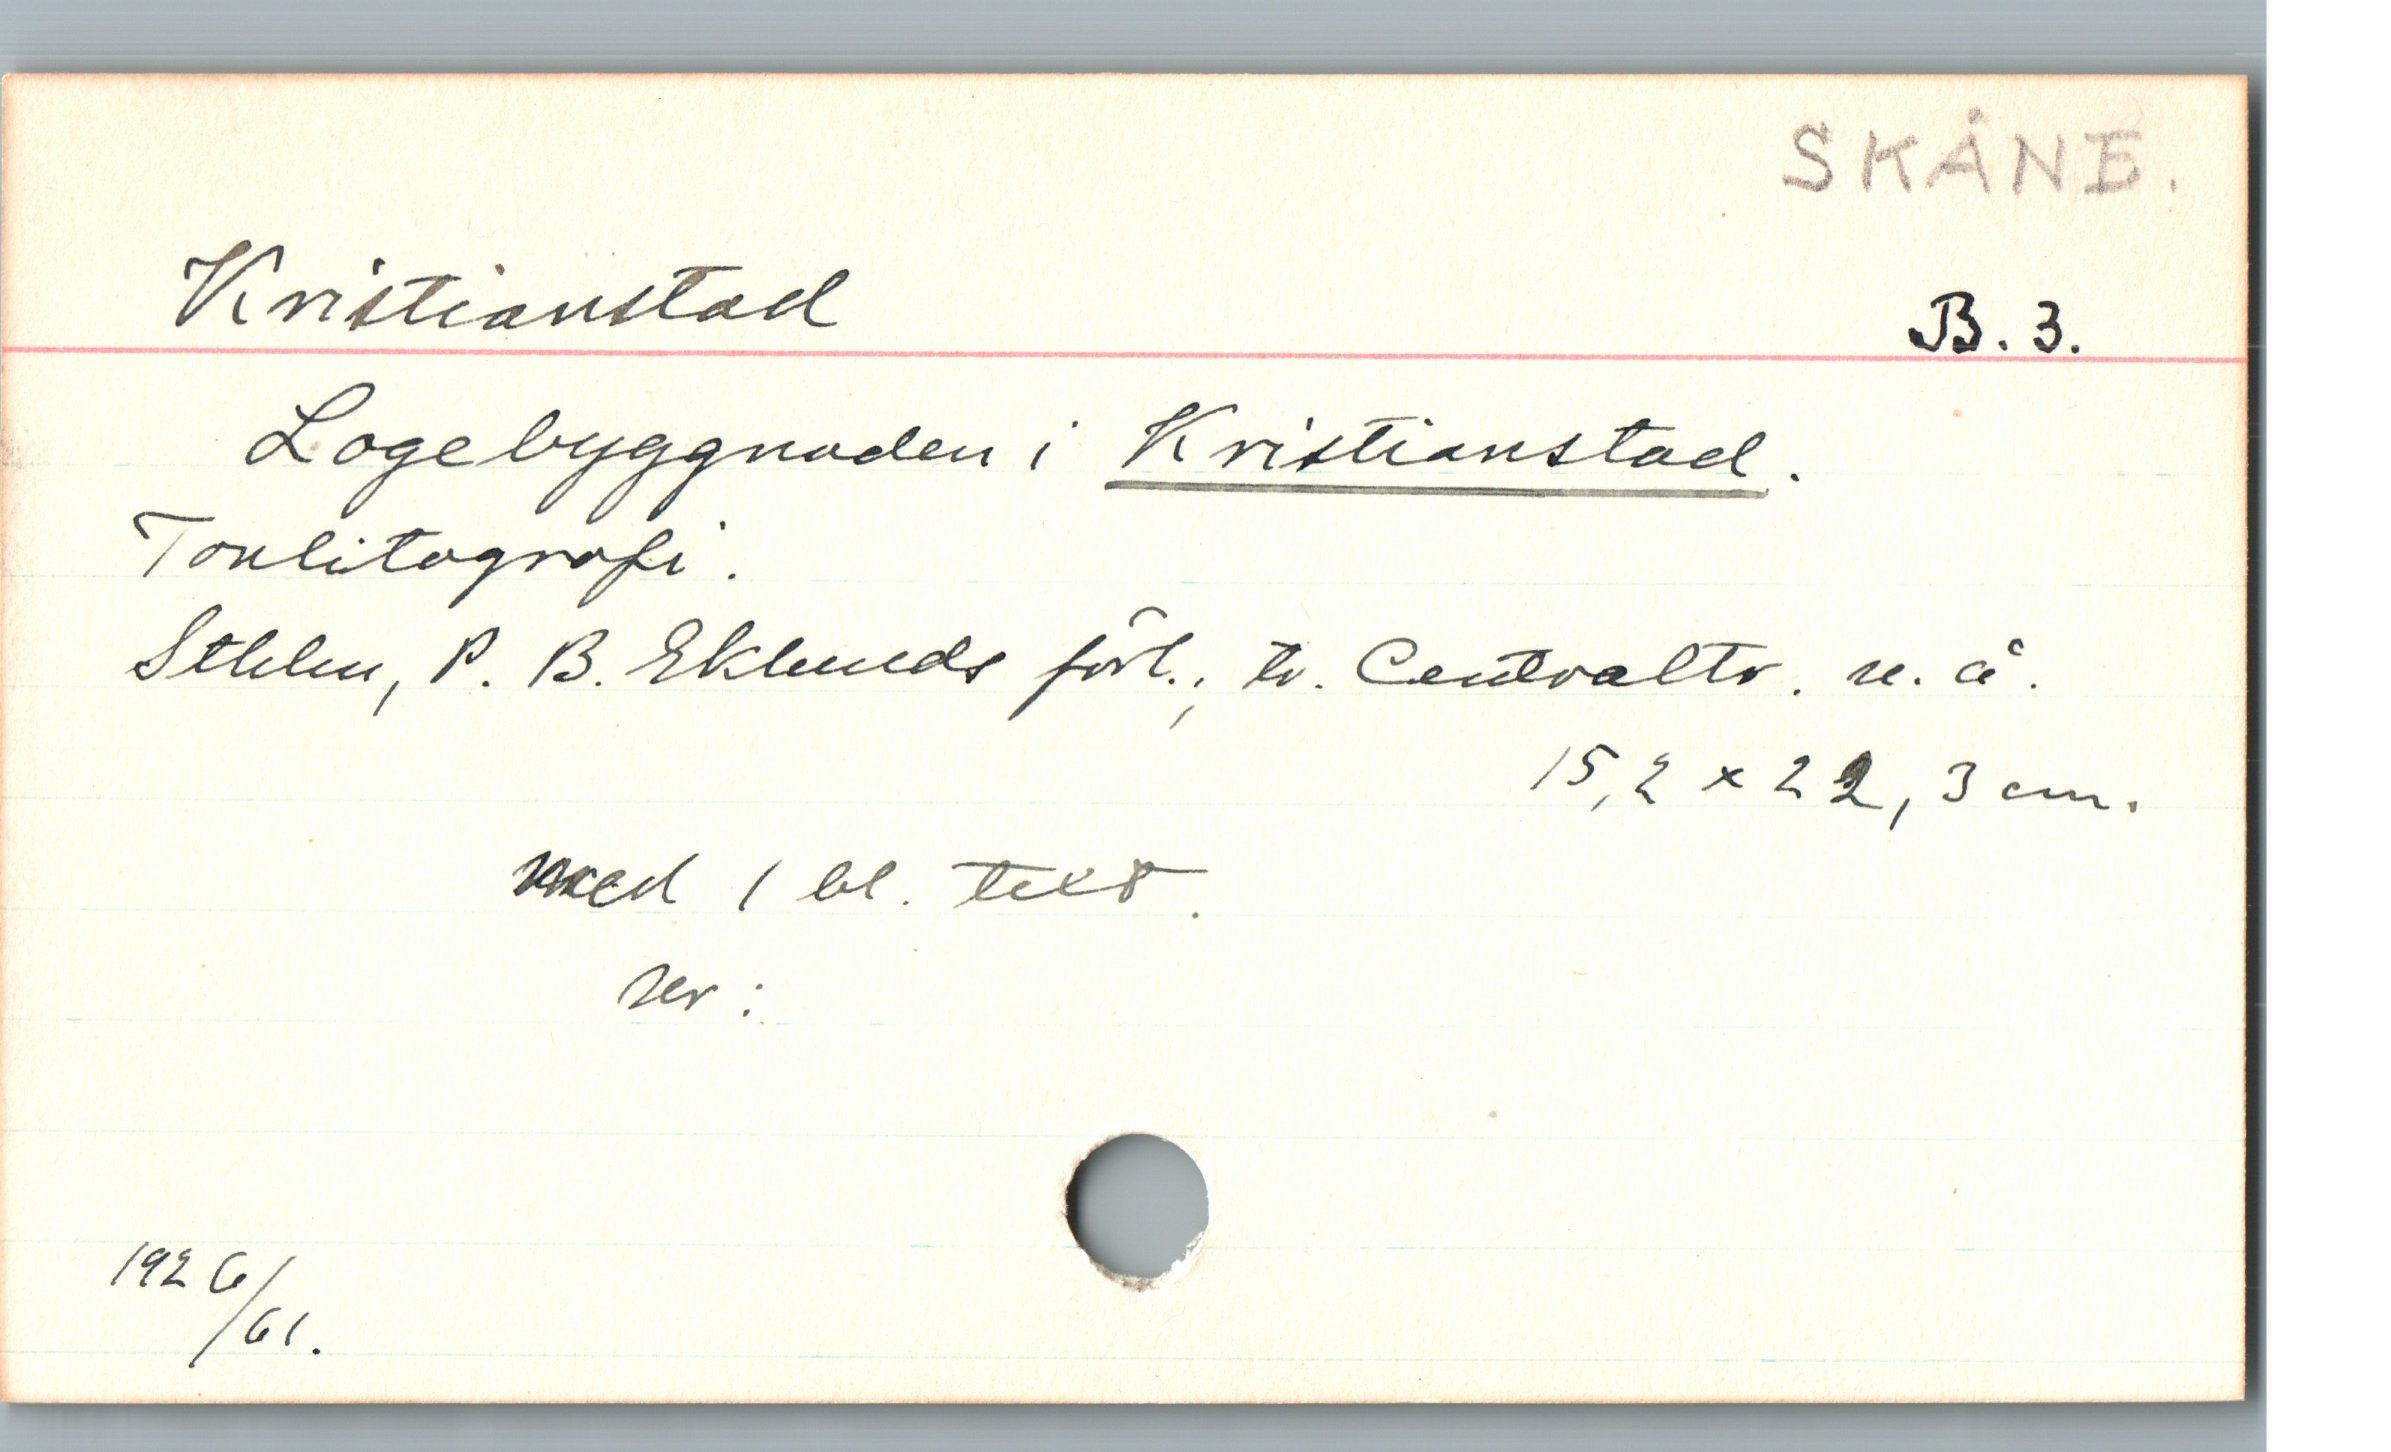 SKÅNE.
Kristianstad B. 3.
Logebyggnaden i Kristianstad.
Tonlitografi.
Sthlm, P. B. Eklunds förl., tr. Centraltr. u. å.
15,2 x 22,3 cm.
med 1 bl. text.
ser:
1926/61.